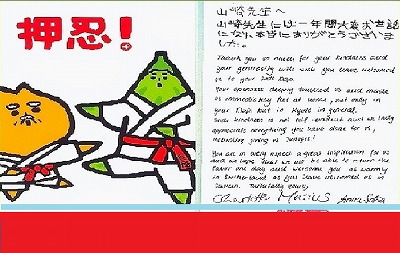 押忍!
山崎先生へ
山崎先生には一年間大変お世話
になり、本当にありがとうございま
した。
Thank you so much for your kindness and
your generosity with which you have welcomed
us to your Dojo.
Your openness deeply touched us and made
us immediately feel at home, not only in
your Dojo but in Kyoto in general.
Such kindness is not self-evident and we really
appreciate everything you have done for us,
including joining us
You are in every aspect a great inspiration for us
and we hope that we will be able to return the
favor one day and welcome you as warmly
in Switzerland as you have welcomed us in
Japan.